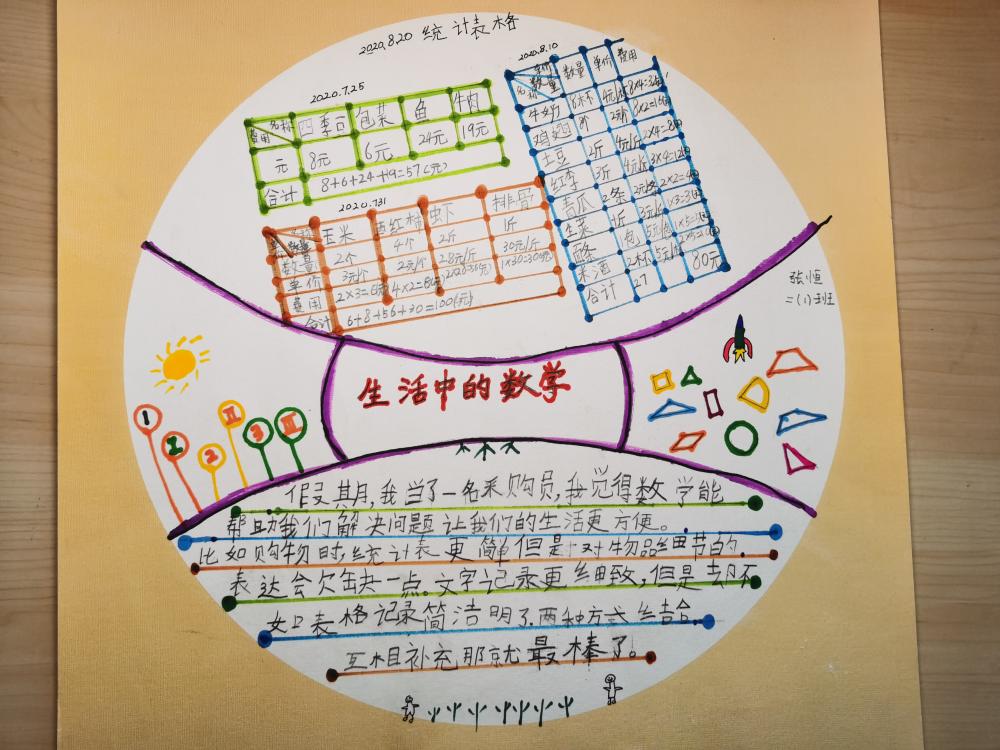 2020.8.20 统计表格
2020.7.25
名称 四季豆 包菜 鱼 牛肉
费用
元 8元 6元 24元 19元
合计 8+6+24+19=57(元)
2020.7.31
玉米 西红柿 虾 排骨
数量 2个 4个 2斤 1斤
单价 3元/个 2元/个 28元/斤 30元/斤
费用 2×3=6(元) 4×2=8(元) 2×28=56(元) 1×30=30(元)
合计 6+8+56+30=100(元)
2020.8.10
名称 数量 单价 费用
牛奶 8杯 8×4=32(元)
鸡翅 8×2=16(元)
土豆 2斤 4元/斤 2×4=8(元)
红李 3斤 4元/斤 3×4=12(元)
青瓜 2条 2元/条 2×2=4(元)
生菜 1斤 3元/斤 1×3=3(元)
1包 5元/包 1×5=5(元)
米酒 2杯
合计 27 80元
张恒
二(1)班
生活中的数学
1 I 2 II 3 III
假期,我当了一名采购员,我觉得数学能
帮助我们解决问题让我们的生活更方便。
比如购物时,统计表更简单但是对物品细节的
表达会欠缺一点。文字记录更细致,但是却不
如表格记录简洁明了.两种方式结合.
互相补充那就最棒了。